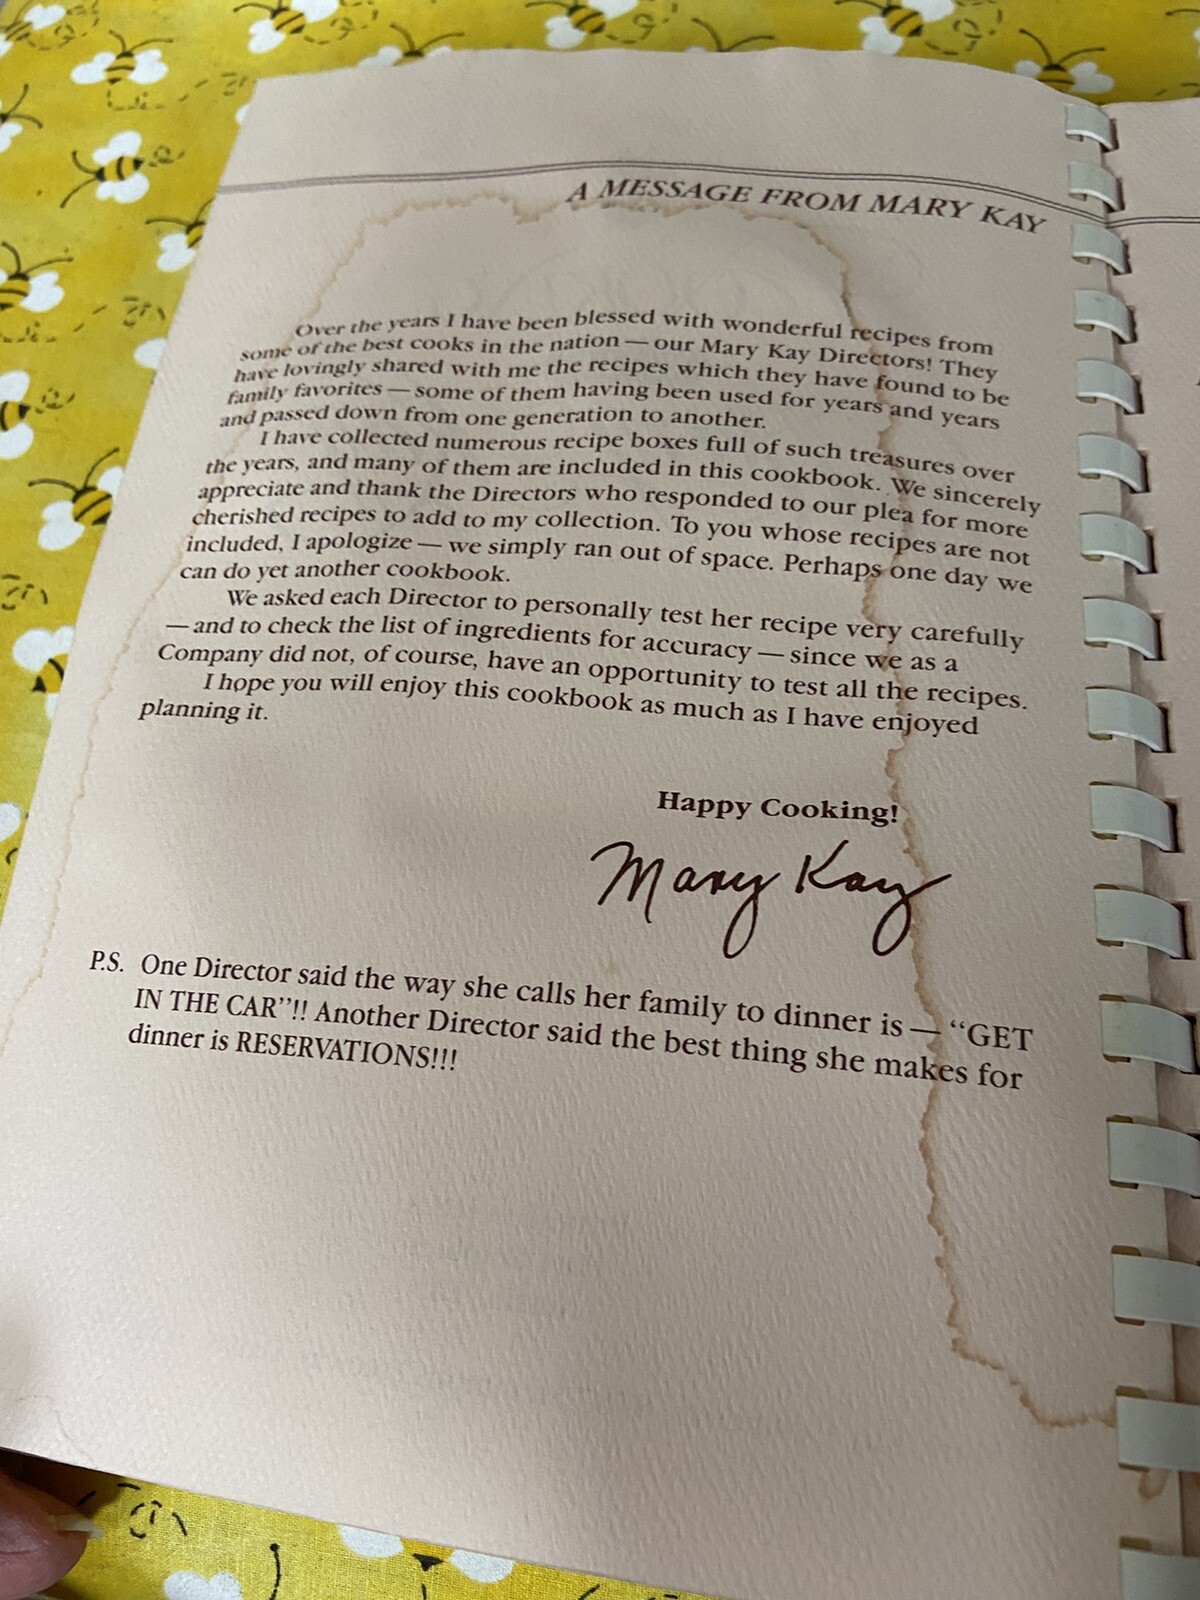 A MESSAGE FROM MARY KAY
Over the years I have been blessed with wonderful recipes from
some of the best cooks in the nation — our Mary Kay Directors! They
have lovingly shared with me the recipes which they have found to be
family favorites — some of them having been used for years and years
and passed down from one generation to another.
I have collected numerous recipe boxes full of such treasures over
the years, and many of them are included in this cookbook. We sincerely
appreciate and thank the Directors who responded to our plea for more
cherished recipes to add to my collection. To you whose recipes are not
included, I apologize — we simply ran out of space. Perhaps one day we
can do yet another cookbook.
We asked each Director to personally test her recipe very carefully
— and to check the list of ingredients for accuracy — since we as a
Company did not, of course, have an opportunity to test all the recipes.
I hope you will enjoy this cookbook as much as I have enjoyed
planning it.
Happy Cooking!
Mary Kay
P.S. One Director said the way she calls her family to dinner is — “GET
IN THE CAR”!! Another Director said the best thing she makes for
dinner is RESERVATIONS!!!